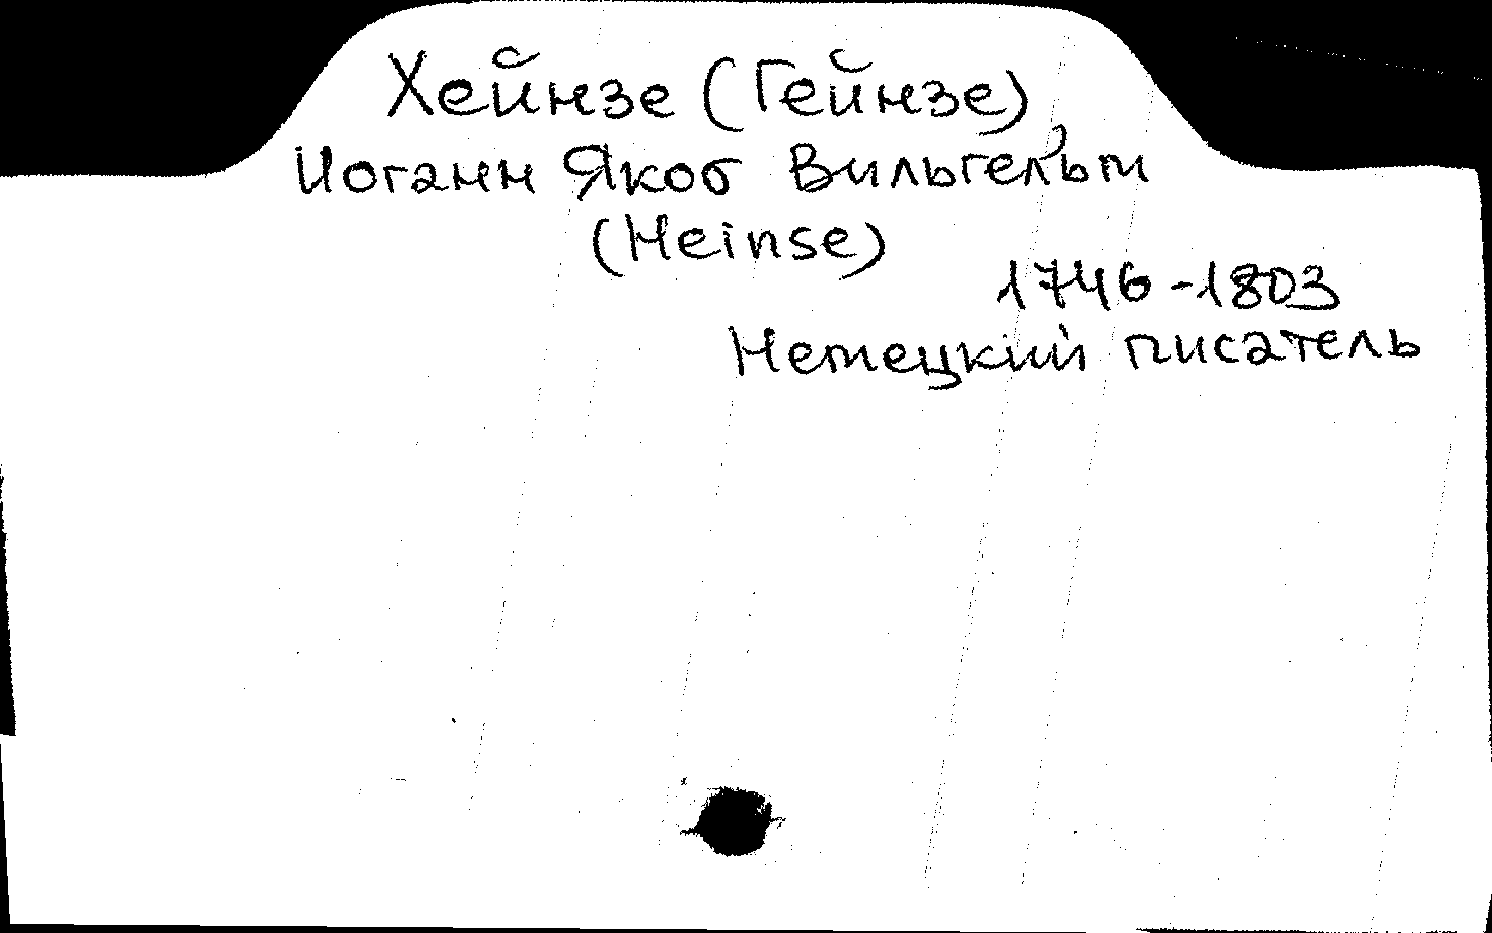 Хейнзе (Гейнзе)
Иоганн Якоб Вильгельм
(Heinse)
1746-1803
Немецкий писатель